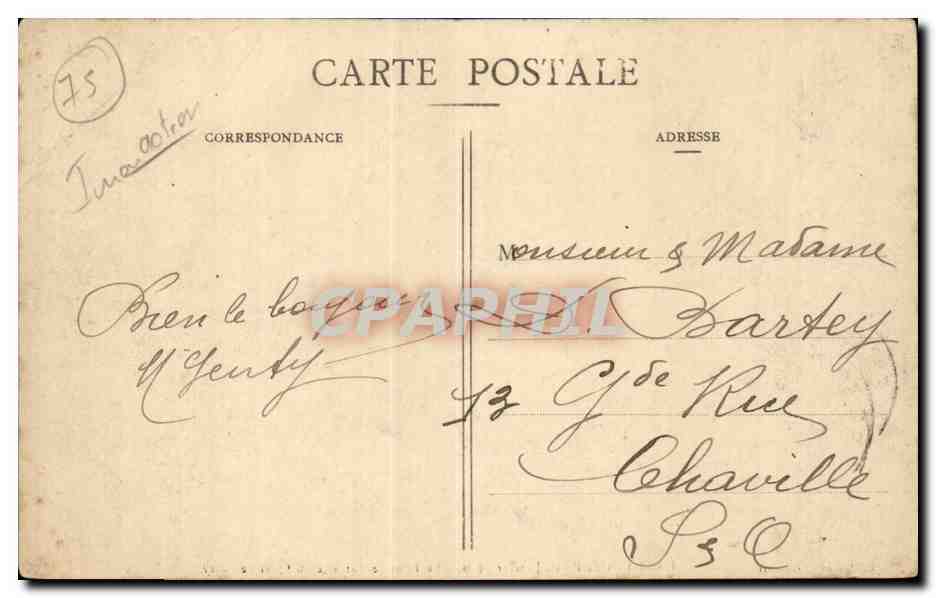 75
Inondation
CARTE POSTALE
CORRESPONDANCE
ADRESSE
Bien le bonjour
Monsieur & Madame
Bartey
13 Gde Rue
Chaville
S & O
CPAPHIL